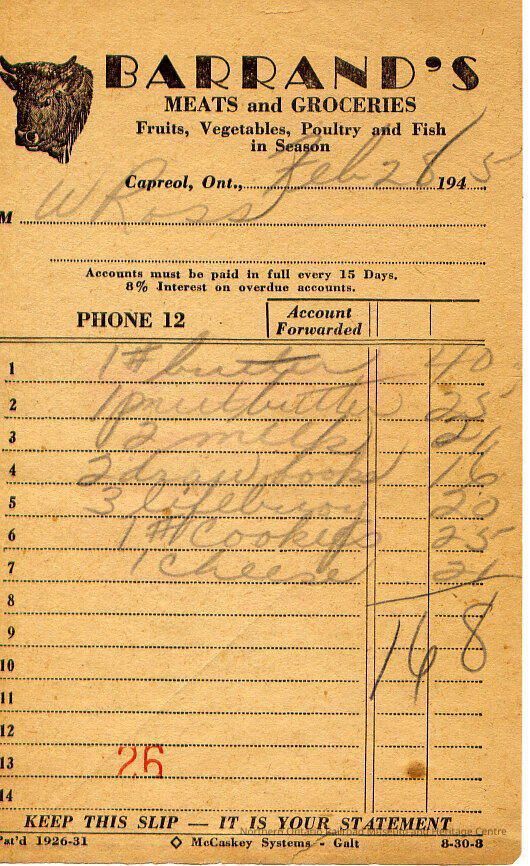 BARRAND'S
MEATS and GROCERIES
Fruits, Vegetables, Poultry and Fish
in Season
Capreol, Ont., Feb 28 1945
M W Ross
Accounts must be paid in full every 15 Days.
8% Interest on overdue accounts.
PHONE 12
Account
Forwarded
1 1 # butter 40
2 1 pnut butter 25
3 2 milk 21
4 2 draw books 16
5 3 lifebuoy 20
6 1 # Cookies 25
7 1 cheese 21
8
9 168
10
11
12
13 26
14
KEEP THIS SLIP — IT IS YOUR STATEMENT
Northern Ontario Railroad Museum and Heritage Centre
Pat'd 1926-31 McCaskey Systems - Galt 8-30-8